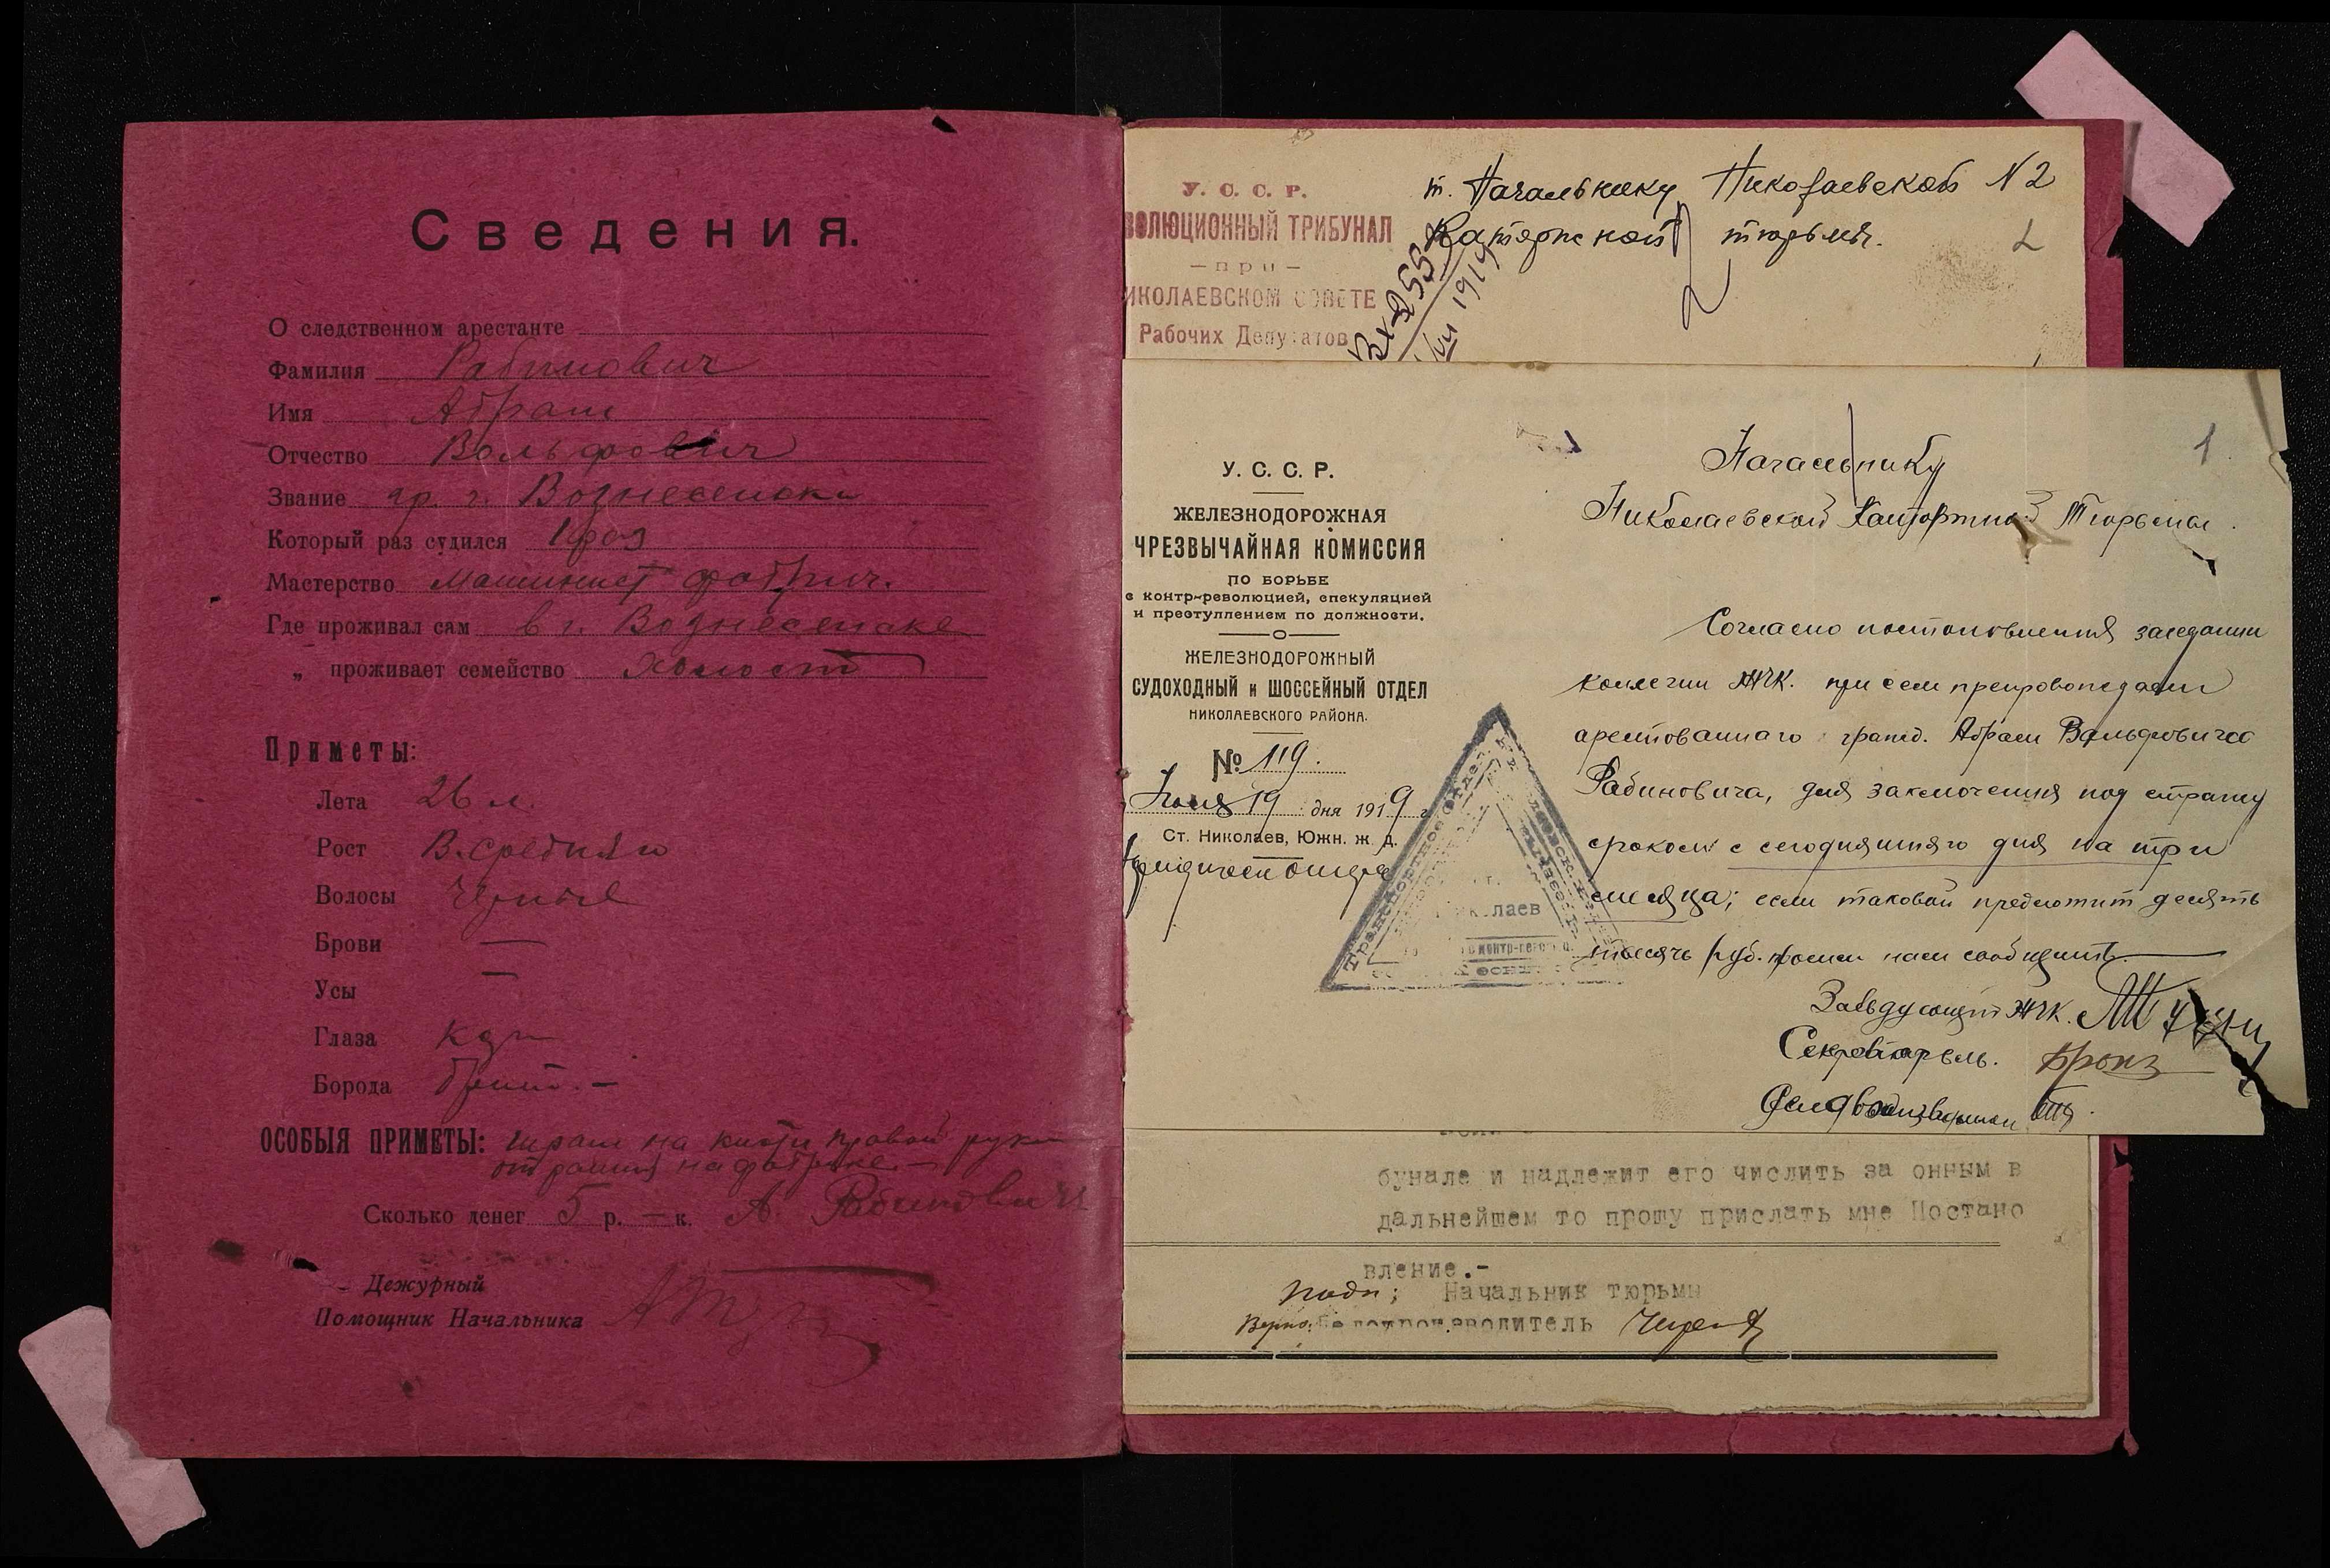 Сведения.
О следственном арестанте
Фамилия Рабинович
Имя Абрам
Отчество Вольфович
Звание гр. г. Вознесенска
Который раз судился 1 раз
Мастерство Машинист фабрич.
Где проживал сам в г. Вознесенске
„ проживает семейство холост
Приметы:
Лета 26 л.
Рост В. средняго
Волосы Черные
Брови —
Усы —
Глаза
Борода —
ОСОБЫЯ ПРИМЕТЫ: шрам на кисти правой руки
от раны на фабрике. —
Сколько денег 5 р. — к. А. Рабинович
Дежурный
Помощник Начальника
У. С. С. Р.
ВОЛЮЦИОННЫЙ ТРИБУНАЛ
— при —
ИКОЛАЕВСКОМ СОВЕТЕ
Рабочих Депутатов
т. Начальнику Николаевской N 2
Каторжной тюрьмы.
2
У. С. С. Р.
ЖЕЛЕЗНОДОРОЖНАЯ
ЧРЕЗВЫЧАЙНАЯ КОМИССИЯ
ПО БОРЬБЕ
с контр-революцией, спекуляцией
и преступлением по должности.
ЖЕЛЕЗНОДОРОЖНЫЙ
СУДОХОДНЫЙ и ШОССЕЙНЫЙ ОТДЕЛ
НИКОЛАЕВСКОГО РАЙОНА.
№ 119.
19 дня 1919 г
Ст. Николаев, Южн. ж. д.
1
Начальнику
Николаевской Каторжной Тюрьмы.
Согласно постановления заседания
коллегии ЖЧК. при сем препровождаем
арестованнаго гражд. Абрам Вольфовича
Рабиновича, для заключения под стражу
сроком с сегодняшняго дня на три
месяца; если таковой предложит десять
тысячь руб. просим нам сообщить.
Заведующий ЖЧК.
Секретарь. Бронз
бунале и надлежит его числить за онным в
дальнейшем то прошу прислать мне Постано
вление.-
подп; Начальник тюрьмы
Верно: Делопроизводитель